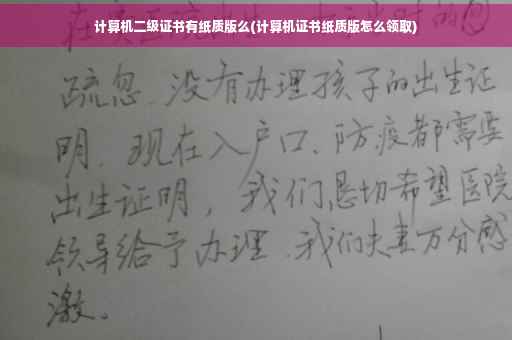 计算机二级证书有纸质版么(计算机证书纸质版怎么领取)
疏忽、没有办理孩子的出生证
明、现在入户口、防疫都需要
出生证明，我们恳切希望医院
领导给予办理、我们夫妻万分感
激。